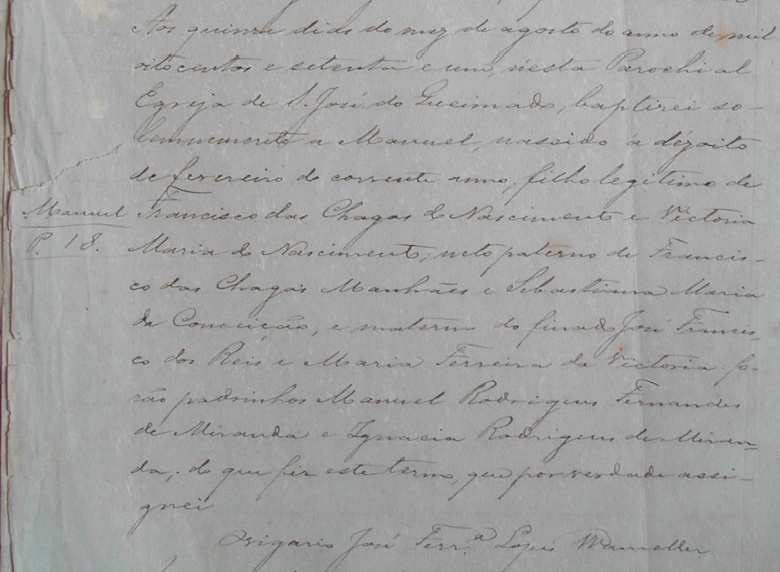 Aos quinze dias do mez de agosto do anno de mil
oitocentos e setenta e um, nesta Parochial
Egreja de S. José do Queimado, baptizei so-
lemnemente a Manuel, nascido a dézoito
de fevereiro do corrente anno, filho legitimo de
Manuel
Francisco das Chagas do Nascimento e Victoria
P. 18.
Maria do Nascimento; neto paterno de Francis-
co das Chagas Manhães e Sebastiana Maria
da Conceição, e materno do finado José Francis-
co dos Reis e Maria Ferreira da Victoria: fo-
rão padrinhos Manuel Rodrigues Fernandes
de Miranda e Ignacia Rodrigues de Miran-
da; do que fiz este termo, que por verdade assi-
gnei
O vigario José Ferr.ª Lopes